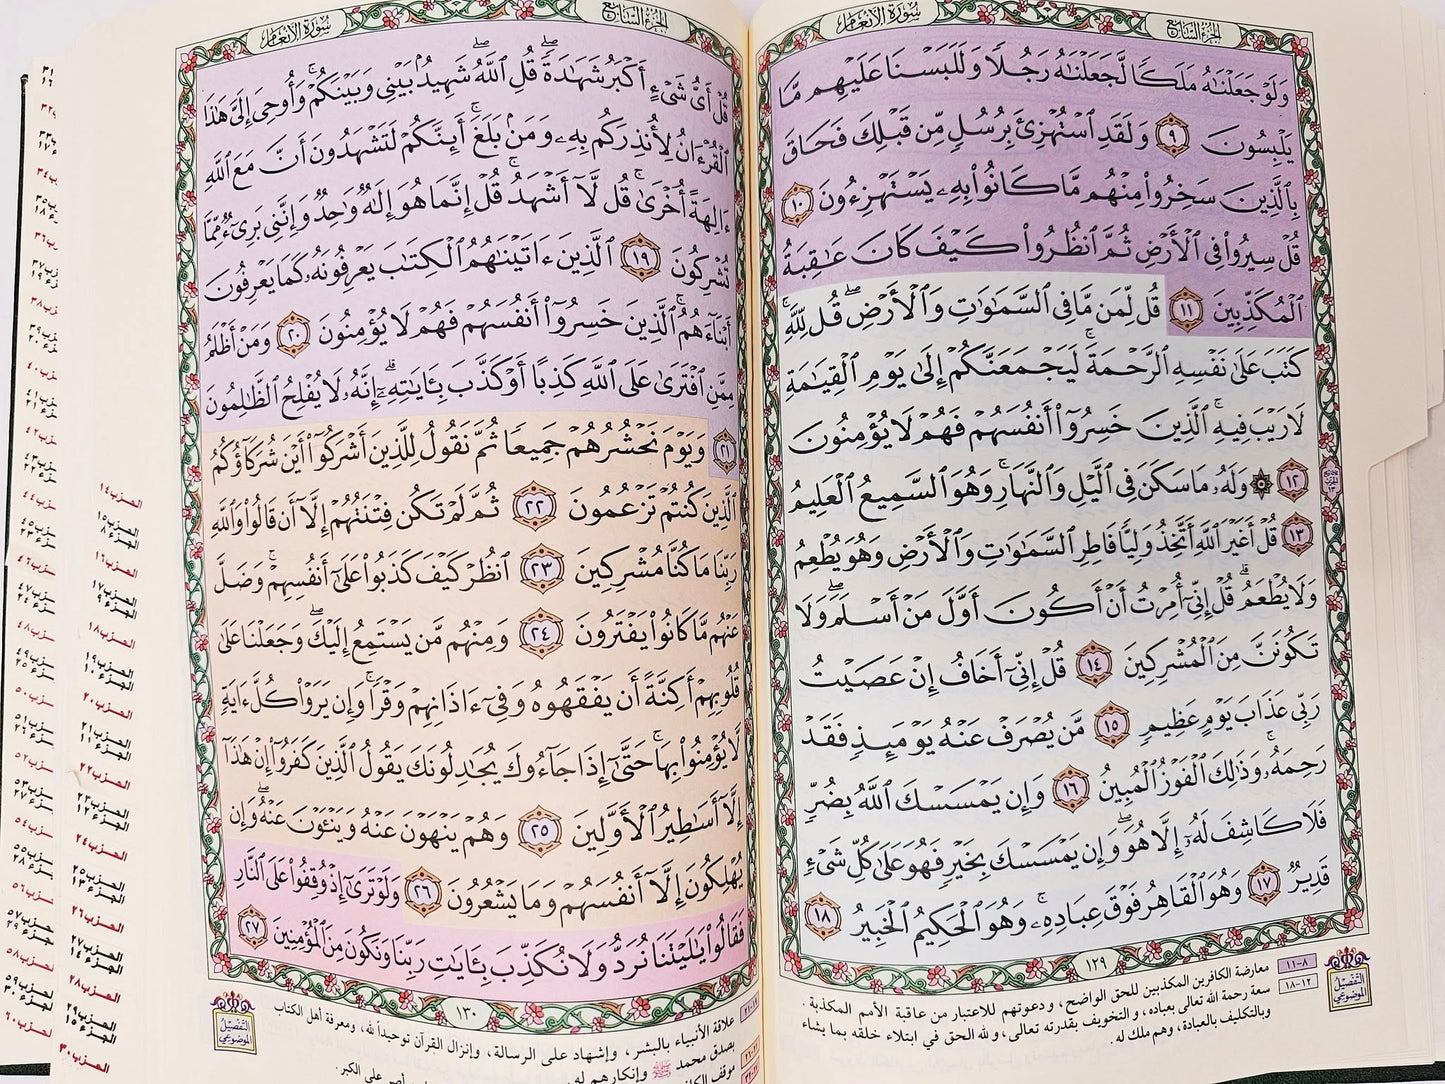 الجزء السابع
سورة الأنعام
وَلَوْ جَعَلْنَٰهُ مَلَكًا لَّجَعَلْنَٰهُ رَجُلًا وَلَلَبَسْنَا عَلَيْهِم مَّا
يَلْبِسُونَ ٩ وَلَقَدِ ٱسْتُهْزِئَ بِرُسُلٍ مِّن قَبْلِكَ فَحَاقَ
بِٱلَّذِينَ سَخِرُوا۟ مِنْهُم مَّا كَانُوا۟ بِهِۦ يَسْتَهْزِءُونَ ١٠
قُلْ سِيرُوا۟ فِى ٱلْأَرْضِ ثُمَّ ٱنظُرُوا۟ كَيْفَ كَانَ عَٰقِبَةُ
ٱلْمُكَذِّبِينَ ١١ قُل لِّمَن مَّا فِى ٱلسَّمَٰوَٰتِ وَٱلْأَرْضِ ۖ قُل لِّلَّهِ ۚ
كَتَبَ عَلَىٰ نَفْسِهِ ٱلرَّحْمَةَ ۚ لَيَجْمَعَنَّكُمْ إِلَىٰ يَوْمِ ٱلْقِيَٰمَةِ
لَا رَيْبَ فِيهِ ۚ ٱلَّذِينَ خَسِرُوٓا۟ أَنفُسَهُمْ فَهُمْ لَا يُؤْمِنُونَ
١٢ ۞ وَلَهُۥ مَا سَكَنَ فِى ٱلَّيْلِ وَٱلنَّهَارِ ۚ وَهُوَ ٱلسَّمِيعُ ٱلْعَلِيمُ
١٣ قُلْ أَغَيْرَ ٱللَّهِ أَتَّخِذُ وَلِيًّا فَاطِرِ ٱلسَّمَٰوَٰتِ وَٱلْأَرْضِ وَهُوَ يُطْعِمُ
وَلَا يُطْعَمُ ۗ قُلْ إِنِّىٓ أُمِرْتُ أَنْ أَكُونَ أَوَّلَ مَنْ أَسْلَمَ ۖ وَلَا
تَكُونَنَّ مِنَ ٱلْمُشْرِكِينَ ١٤ قُلْ إِنِّىٓ أَخَافُ إِنْ عَصَيْتُ
رَبِّى عَذَابَ يَوْمٍ عَظِيمٍ ١٥ مَّن يُصْرَفْ عَنْهُ يَوْمَئِذٍ فَقَدْ
رَحِمَهُۥ ۚ وَذَٰلِكَ ٱلْفَوْزُ ٱلْمُبِينُ ١٦ وَإِن يَمْسَسْكَ ٱللَّهُ بِضُرٍّ
فَلَا كَاشِفَ لَهُۥٓ إِلَّا هُوَ ۖ وَإِن يَمْسَسْكَ بِخَيْرٍ فَهُوَ عَلَىٰ كُلِّ شَىْءٍ
قَدِيرٌ ١٧ وَهُوَ ٱلْقَاهِرُ فَوْقَ عِبَادِهِۦ ۚ وَهُوَ ٱلْحَكِيمُ ٱلْخَبِيرُ ١٨
١٢٩
التفصيل الموضوعي
٨-١١ معارضة الكافرين المكذبين للحق الواضح، ودعوتهم للاعتبار من عاقبة الأمم المكذبة.
١٢-١٨ سعة رحمة الله تعالى بعباده، والتخويف بقدرته تعالى، ولله الحق في ابتلاء خلقه بما يشاء
وبالتكليف بالعبادة، وهم ملك له.
الجزء السابع
سورة الأنعام
قُلْ أَىُّ شَىْءٍ أَكْبَرُ شَهَٰدَةً ۖ قُلِ ٱللَّهُ ۖ شَهِيدٌۢ بَيْنِى وَبَيْنَكُمْ ۚ وَأُوحِىَ إِلَىَّ هَٰذَا
ٱلْقُرْءَانُ لِأُنذِرَكُم بِهِۦ وَمَنۢ بَلَغَ ۚ أَئِنَّكُمْ لَتَشْهَدُونَ أَنَّ مَعَ ٱللَّهِ
ءَالِهَةً أُخْرَىٰ ۚ قُل لَّآ أَشْهَدُ ۚ قُلْ إِنَّمَا هُوَ إِلَٰهٌ وَٰحِدٌ وَإِنَّنِى بَرِىٓءٌ مِّمَّا
تُشْرِكُونَ ١٩ ٱلَّذِينَ ءَاتَيْنَٰهُمُ ٱلْكِتَٰبَ يَعْرِفُونَهُۥ كَمَا يَعْرِفُونَ
أَبْنَآءَهُمُ ۘ ٱلَّذِينَ خَسِرُوٓا۟ أَنفُسَهُمْ فَهُمْ لَا يُؤْمِنُونَ ٢٠ وَمَنْ أَظْلَمُ
مِمَّنِ ٱفْتَرَىٰ عَلَى ٱللَّهِ كَذِبًا أَوْ كَذَّبَ بِـَٔايَٰتِهِۦٓ ۗ إِنَّهُۥ لَا يُفْلِحُ ٱلظَّٰلِمُونَ
٢١ وَيَوْمَ نَحْشُرُهُمْ جَمِيعًا ثُمَّ نَقُولُ لِلَّذِينَ أَشْرَكُوٓا۟ أَيْنَ شُرَكَآؤُكُمُ
ٱلَّذِينَ كُنتُمْ تَزْعُمُونَ ٢٢ ثُمَّ لَمْ تَكُن فِتْنَتُهُمْ إِلَّآ أَن قَالُوا۟ وَٱللَّهِ
رَبِّنَا مَا كُنَّا مُشْرِكِينَ ٢٣ ٱنظُرْ كَيْفَ كَذَبُوا۟ عَلَىٰٓ أَنفُسِهِمْ ۚ وَضَلَّ
عَنْهُم مَّا كَانُوا۟ يَفْتَرُونَ ٢٤ وَمِنْهُم مَّن يَسْتَمِعُ إِلَيْكَ ۖ وَجَعَلْنَا عَلَىٰ
قُلُوبِهِمْ أَكِنَّةً أَن يَفْقَهُوهُ وَفِىٓ ءَاذَانِهِمْ وَقْرًا ۚ وَإِن يَرَوْا۟ كُلَّ ءَايَةٍ
لَّا يُؤْمِنُوا۟ بِهَا ۚ حَتَّىٰٓ إِذَا جَآءُوكَ يُجَٰدِلُونَكَ يَقُولُ ٱلَّذِينَ كَفَرُوٓا۟ إِنْ هَٰذَآ
إِلَّآ أَسَٰطِيرُ ٱلْأَوَّلِينَ ٢٥ وَهُمْ يَنْهَوْنَ عَنْهُ وَيَنْـَٔوْنَ عَنْهُ ۖ وَإِن
يُهْلِكُونَ إِلَّآ أَنفُسَهُمْ وَمَا يَشْعُرُونَ ٢٦ وَلَوْ تَرَىٰٓ إِذْ وُقِفُوا۟ عَلَى ٱلنَّارِ
فَقَالُوا۟ يَٰلَيْتَنَا نُرَدُّ وَلَا نُكَذِّبَ بِـَٔايَٰتِ رَبِّنَا وَنَكُونَ مِنَ ٱلْمُؤْمِنِينَ ٢٧
١٣٠
التفصيل الموضوعي
علاقة الأنبياء بالبشر، وإشهاد على الرسالة، وإنزال القرآن توحيداً لله، ومعرفة أهل الكتاب
بصدق محمد ﷺ وإنكارهم له
الحزب ١٤
الحزب ١٦
الحزب ١٨
الحزب ٢٠
الحزب ٢٢
الحزب ٢٤
الحزب ٢٦
الحزب ٢٨
الحزب ٣٠